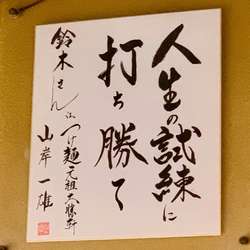 人生の試練に
打ち勝て
鈴木さん江 つけ麺元祖大勝軒
山岸一雄